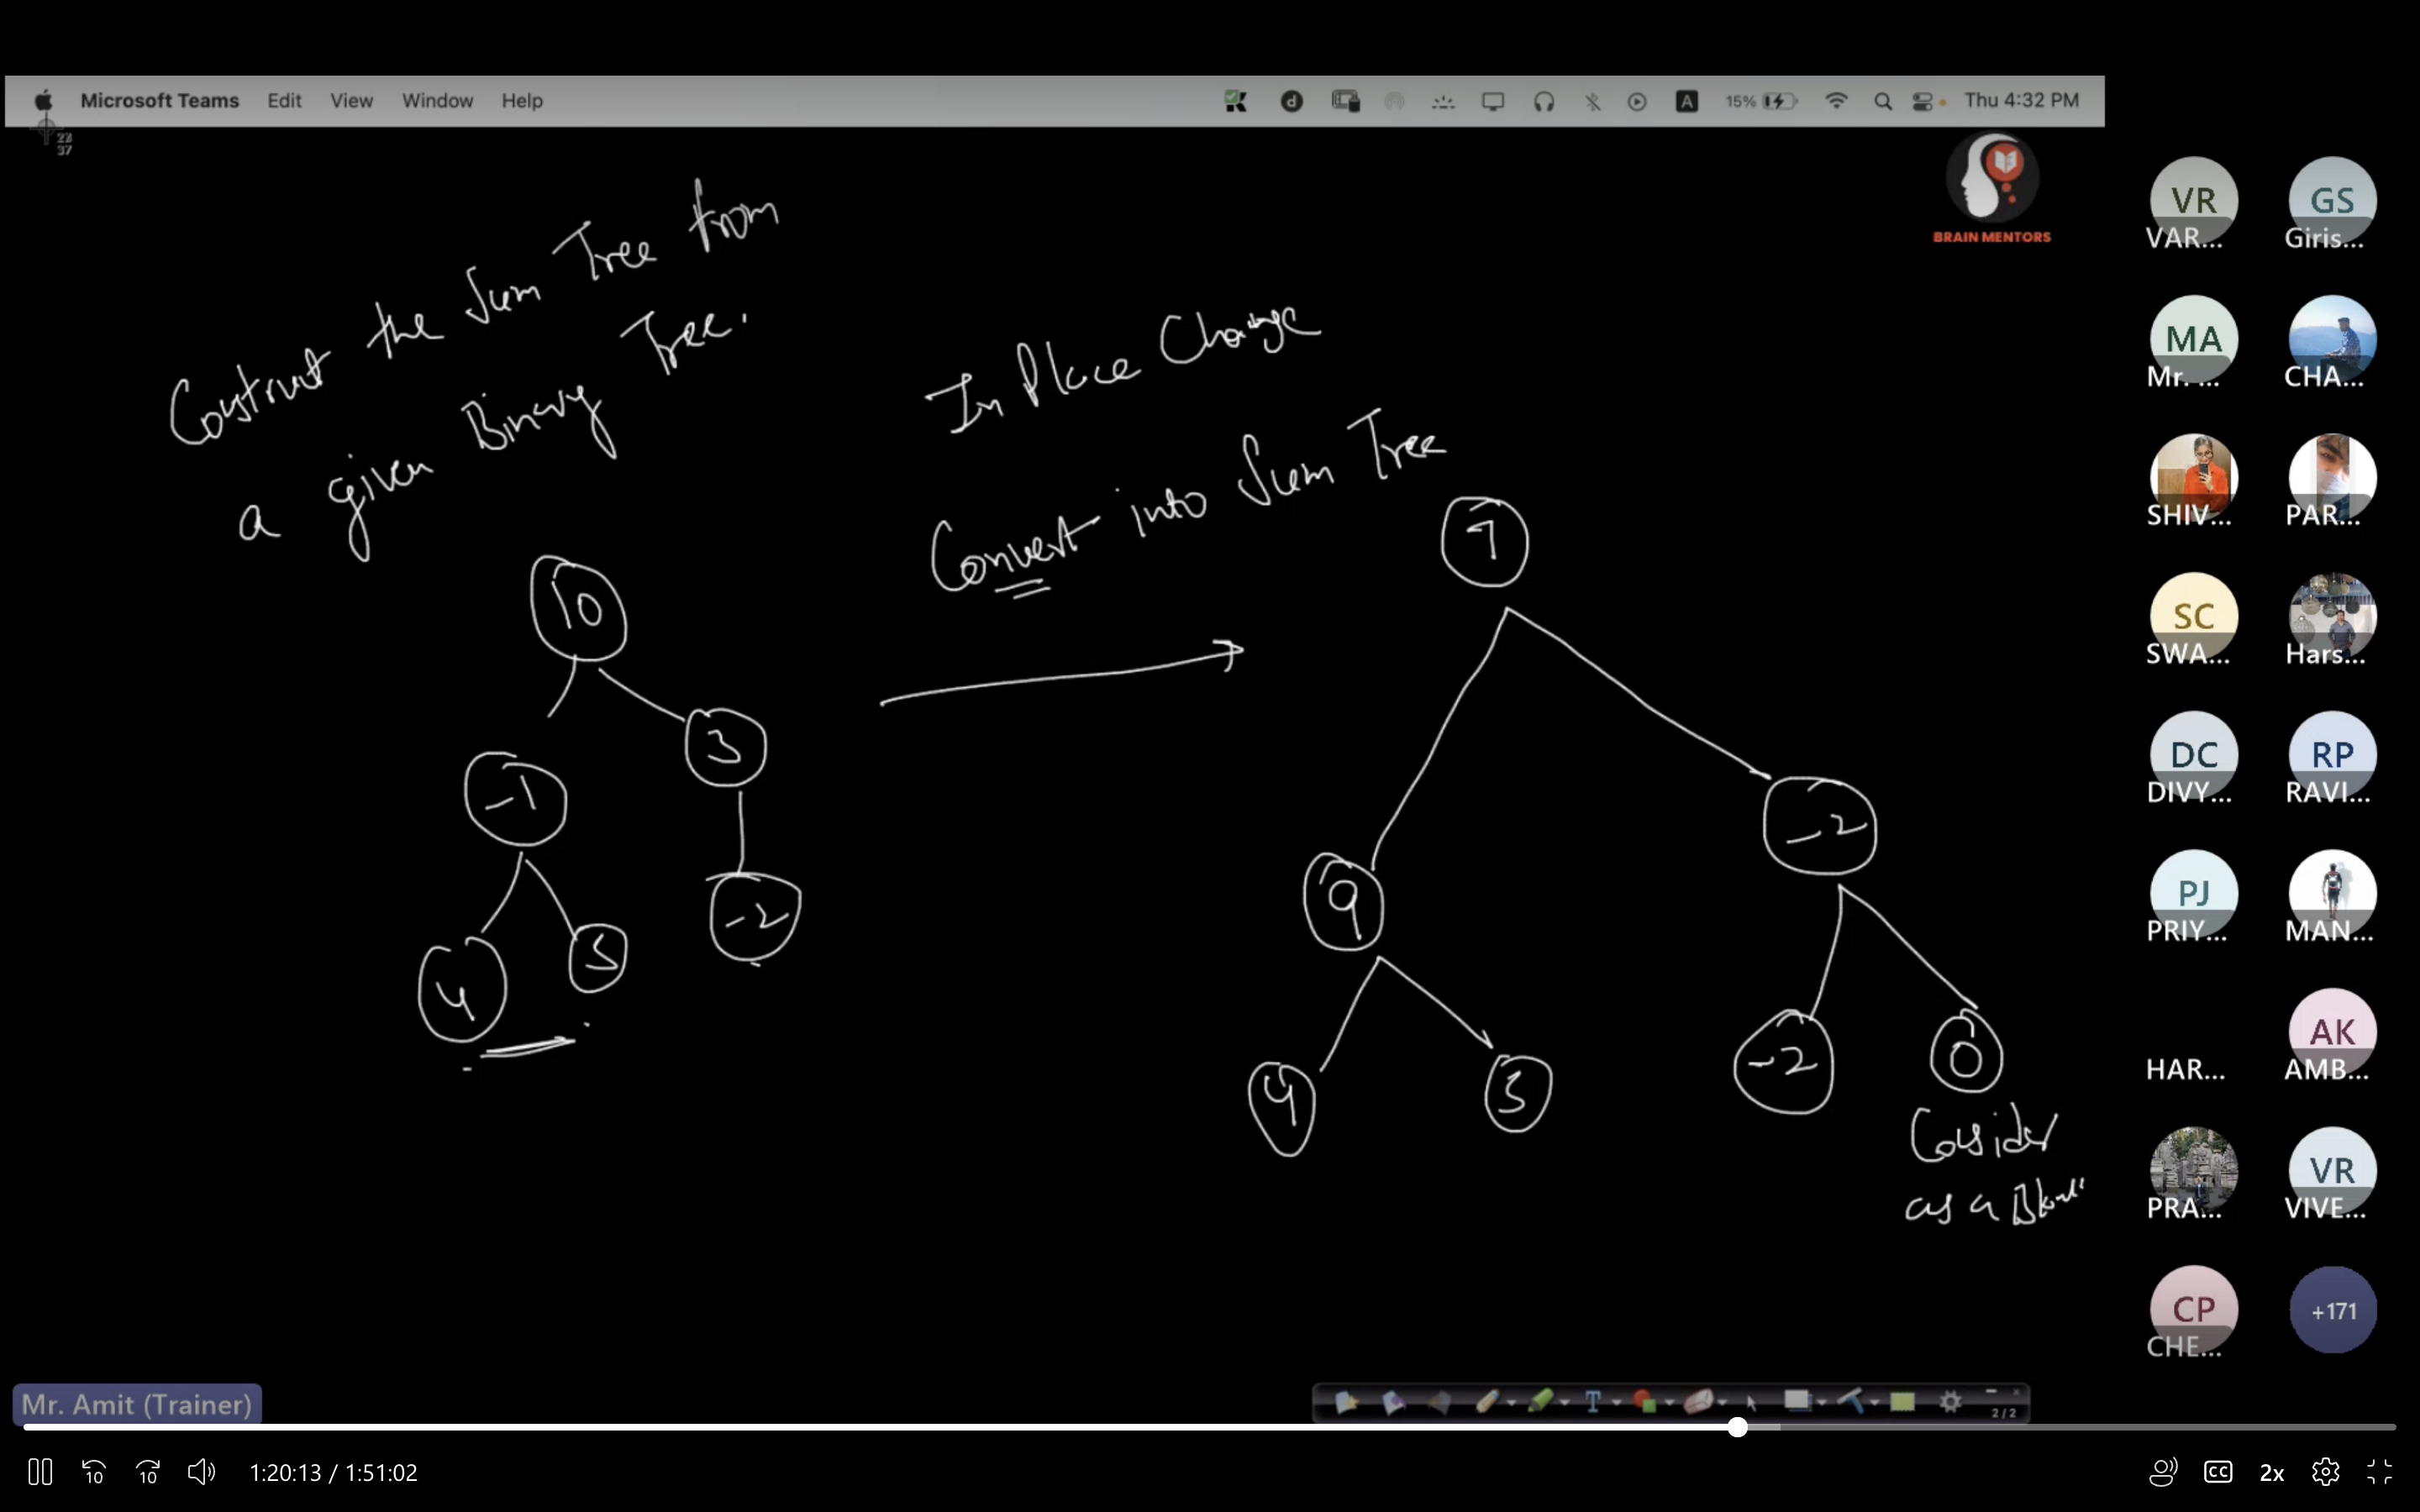 Microsoft Teams Edit View Window Help 15% Thu 4:32 PM
23
37
BRAIN MENTORS
Construct the Sum Tree from
a given Binary Tree.
In Place Change
Convert into Sum Tree
10
-1
3
4
5
-2
7
9
-2
4
5
-2
0
Consider
as a
VR
VAR...
GS
Giris...
MA
Mr. ...
CHA...
SHIV...
PAR...
SC
SWA...
Hars...
DC
DIVY...
RP
RAVI...
PJ
PRIY...
MAN...
HAR...
AK
AMB...
PRA...
VR
VIVE...
CP
CHE...
+171
Mr. Amit (Trainer)
2/2
10 10 1:20:13 / 1:51:02 CC 2x